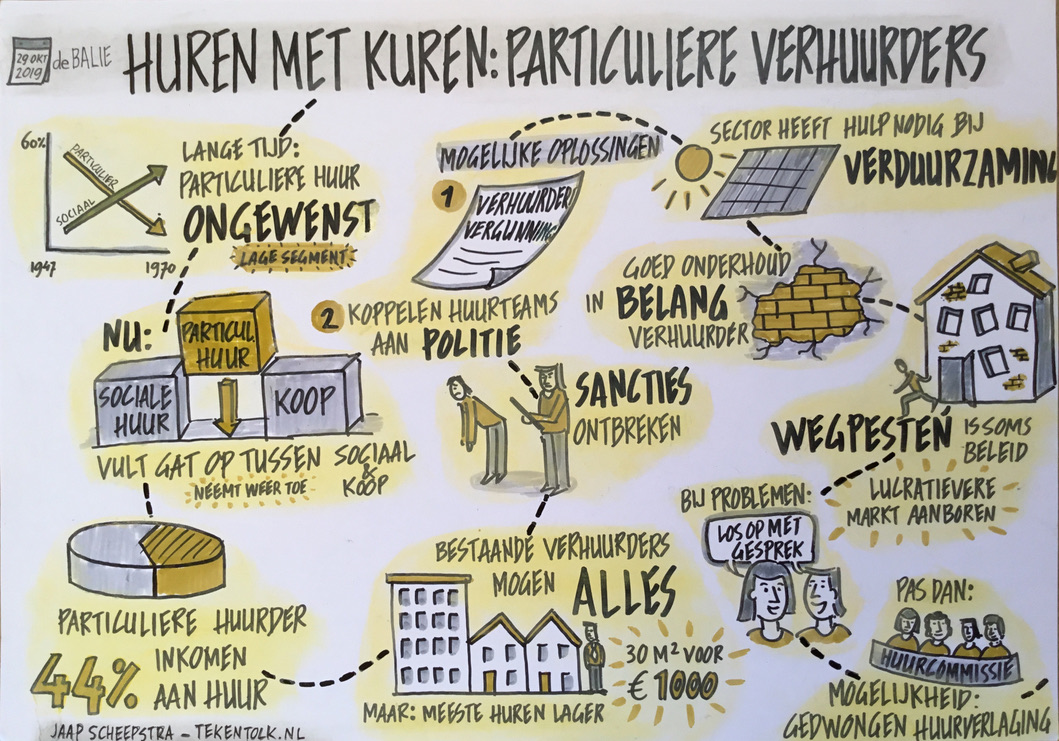 29 OKT
2019
de BALIE
HUREN MET KUREN: PARTICULIERE VERHUURDERS
60%
PARTICULIER
SOCIAAL
1947
1970
LANGE TIJD:
PARTICULIERE HUUR
ONGEWENST
LAGE SEGMENT
NU:
PARTICUL.
HUUR
SOCIALE
HUUR
KOOP
VULT GAT OP TUSSEN SOCIAAL
&
KOOP
NEEMT WEER TOE
PARTICULIERE HUURDER
44%
INKOMEN
AAN HUUR
JAAP SCHEEPSTRA – TEKENTOLK.NL
MOGELIJKE OPLOSSINGEN
1
VERHUURDER
VERGUNNING
2 KOPPELEN HUURTEAMS
AAN POLITIE
SANCTIES
ONTBREKEN
BESTAANDE VERHUURDERS
MOGEN ALLES
30 M² VOOR
€ 1000
MAAR: MEESTE HUREN LAGER
SECTOR HEEFT HULP NODIG BIJ
VERDUURZAMING
GOED ONDERHOUD
IN BELANG
VERHUURDER
WEGPESTEN IS SOMS
BELEID
LUCRATIEVERE
MARKT AANBOREN
BIJ PROBLEMEN:
LOS OP MET
GESPREK
PAS DAN:
HUURCOMMISSIE
MOGELIJKHEID:
GEDWONGEN HUURVERLAGING